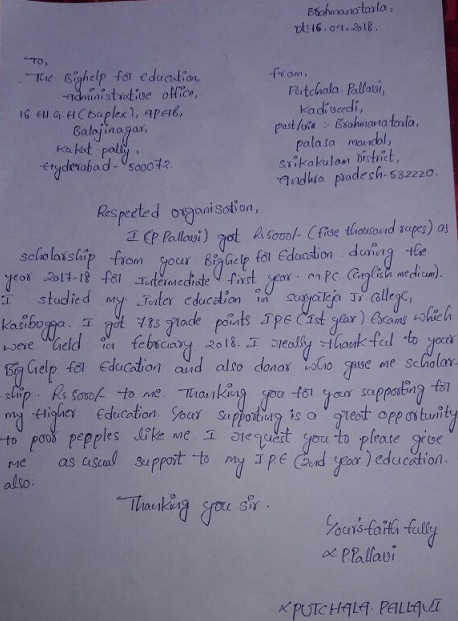 Brahmanatarla,
Dt:16.04.2018.
To,
The Bighelp for Education,
Administrative office,
16 EWGH (Duplex), APHB,
Balajinagar,
Kukat pally,
Hyderabad- 500072.
from,
Putchala. Pallavi,
Kadiseedi,
post/via :- Brahmanatarla,
palasa mandal,
Srikakulam District,
Andhra pradesh-532220.
Respected organisation,
I (P. Pallavi) got Rs.5000/- (five thousand rupes) as
scholarship from your BigHelp for Education during the
year 2017-18 for Intermediate first year. MPC (english medium).
I studied my Inter education in Suryateja Jr. College,
Kasibogga. I got 785 grade points I.P.E (Ist year) Exams which
were held in february 2018. I really thankful to your
Big Help for Education and also donar who gave me scholar-
ship. Rs.5000/- to me. Thanking you for your supporting for
my Higher Education. Your supporting is a great opportunity
to poor pepples like me. I request you to please give
me as usual support to my I.P.E (2nd year) education.
also.
Thanking you sir.
Your's faith fully
P.Pallavi
PUTCHALA. PALLAVI